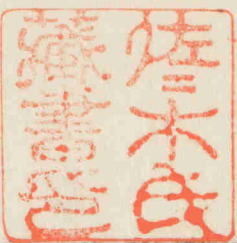 佐々木氏
藏書印